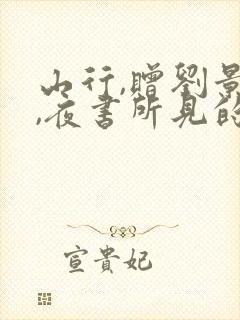 山行,贈劉景
,夜書所見的
宣貴妃